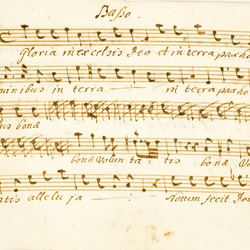 Basso.
gloria in excelsis deo et in terra pax ho
minibus in terra in terra pax ho
bus bonæ
bonæ volun ta tis bonæ Vo
tatis allelu ja Notum fecit Do